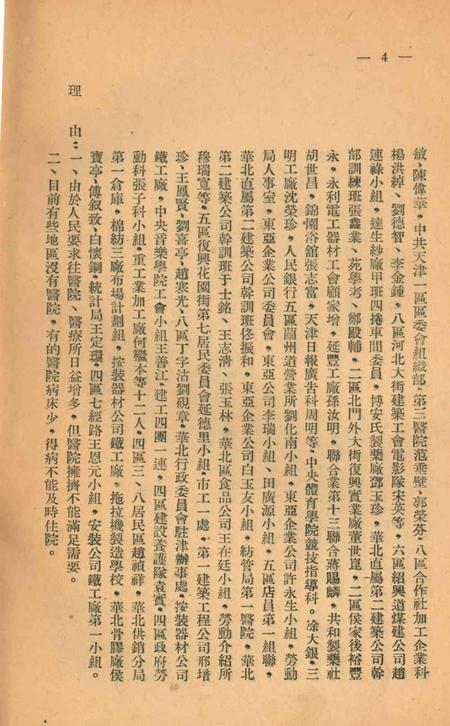 — 4 —
敏、陳偉華，中共天津一區區委會組織部，第三醫院范垂壁、郭榮芬，八區合作社加工企業科
楊洪綽、劉德智、李金鍾，八區河北大街建築工會電影隊宋英等，六區紹興道煤建公司趙
連祿小組，達生紗廠甲班四捲車間委員，博安氏製藥廠鄧玉珍，華北直屬第二建築公司幹
部訓練班張鑫業、苑學考、鄭殿輔，二區北門外大街復興實業廠董世崑，二區侯家後裕豐
永，永利電工器材工會顧家增，延豐工廠孫汝明，聯合業第十三聯合蔣賜麟，共和製藥社
胡世昌，錦園浴舘張志富，天津日報廣告科周明等，中央體育學院競技指導科。凃大銀，三
明工廠沈榮珍，人民銀行五區蘭州道營業所劉化南小組，東亞企業公司許永生小組，勞動
局人事室，東亞企業公司委員會，東亞公司李瑞小組、田廣源小組，五區店員第一組聯，
華北直屬第二建築公司幹訓班佟振和，東亞企業公司白玉友小組，紡管局第一醫院，華北
第二建築公司幹訓班于士銘、王志濤、張玉林，華北區食品公司王在廷小組，勞動介紹所
穆瑞寬等，五區復興花園街第七居民委員會延德里小組，市工一處，第一建築工程公司邢增
珍、王鳳賢、劉喜亭、趙寒光，八區丁字沽劉硯章，華北行政委員會駐津辦事處，按裝器材公司
鐵工廠，中央音樂學院工會小組王善江，建工四團一連，四區建設養護隊袁實，四區政府勞
動科張子科小組，重工業加工廠何繼本等十二人，四區三、八居民區趙禎祥，華北供銷分局
第一倉庫，棉紡三廠布場計劃組，按裝器材公司鐵工廠，拖拉機製造學校，華北骨膠廠侯
寶亭、傅叙致、白懷鋼，統計局王定環，四區七經路王恩元小組，安裝公司鐵工廠第一小組。
理　由：一、由於人民要求往醫院、醫療所日益增多，但醫院擁擠不能滿足需要。
二、目前有些地區沒有醫院，有的醫院病床少，得病不能及時住院。